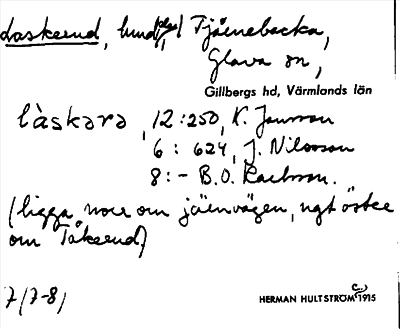 Laskerud, hmd (pl.) Tjärnebacka,
Glava sn,
Gillbergs hd, Värmlands län
làskərə, 12:250, K. Jansson
6: 624, J. Nilsson
8:- B.O. Karlsson.
(ligga norr om järnvägen, ngt öster
om Tåkerud)
7/(7-8) HERMAN HULTSTRÖM 1915